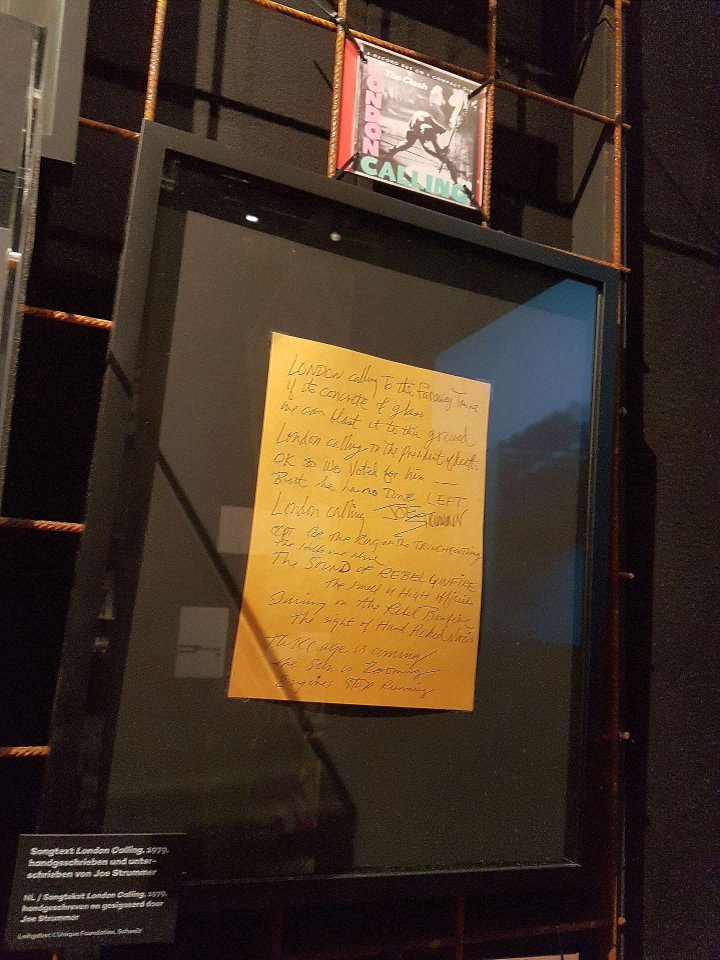 2 RECORD SET ON 1 COMPACT DISC
The Clash
LONDON
CALLING
LONDON calling To the faraway Towns
if its concrete & glass
we can blast it to the ground
London calling To The President of death
OK so we voted for him —
But he has no Time LEFT
London calling JOE Strummer
for the Ring of the TRUNCHEON thing
the
The SOUND OF REBEL GUNFIRE
the smell of HIGH officials
Burning on the Rebel Bonfire
The sight of Hand Picked Nazis
age is coming
the Sun is Zooming
Engines stop Running
Songtext London Calling, 1979,
handgeschrieben und unter-
schrieben von Joe Strummer
NL / Songtekst London Calling, 1979,
handgeschreven en gesigneerd door
Joe Strummer
Leihgeber: L'Unique Foundation, Schweiz